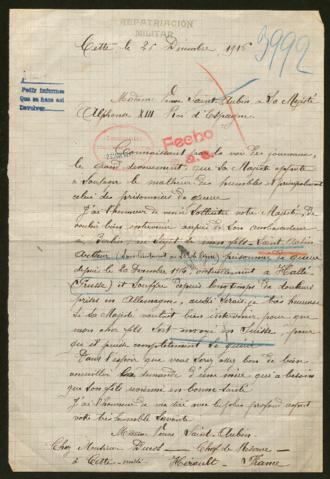 REPATRIACIÓN
MILITAR
Cette, le 25 Décembre 1916
3992
Pedir informes
Que se haga así
Devolver
Madame Saint Aubin, à Sa Majesté
Alphonse XIII Roi d'Espagne.
Fecho
Connaissant par la voie des journaux,
le grand dévouement, que Sa Majesté apporte
à soulager le malheur des humbles et principalement
celui des prisonniers de guerre
J'ai l'honneur de venir solliciter votre Majesté, de
vouloir bien intervenir auprès de son ambassadeur
à Berlin, en mon fils Saint Aubin
prisonnier de guerre
depuis le 20 Décembre 1914 actuellement à Halle
(Prusse) et souffre depuis longtemps de douleurs
prises en Allemagne, aussi serais-je très heureuse
si Sa Majesté voulait bien intervenir pour que
mon cher fils soit envoyé en Suisse pour
qu'il puisse complètement
Dans l'espoir que vous serez assez bon de bien
accueillir la demande d'une mère, qui a besoin
que son fils revienne en bonne santé
J'ai l'honneur de me dire avec le plus profond respect
votre très humble servante
Madame Saint-Aubin
Chez Monsieur Chef de
à Cette Hérault - France